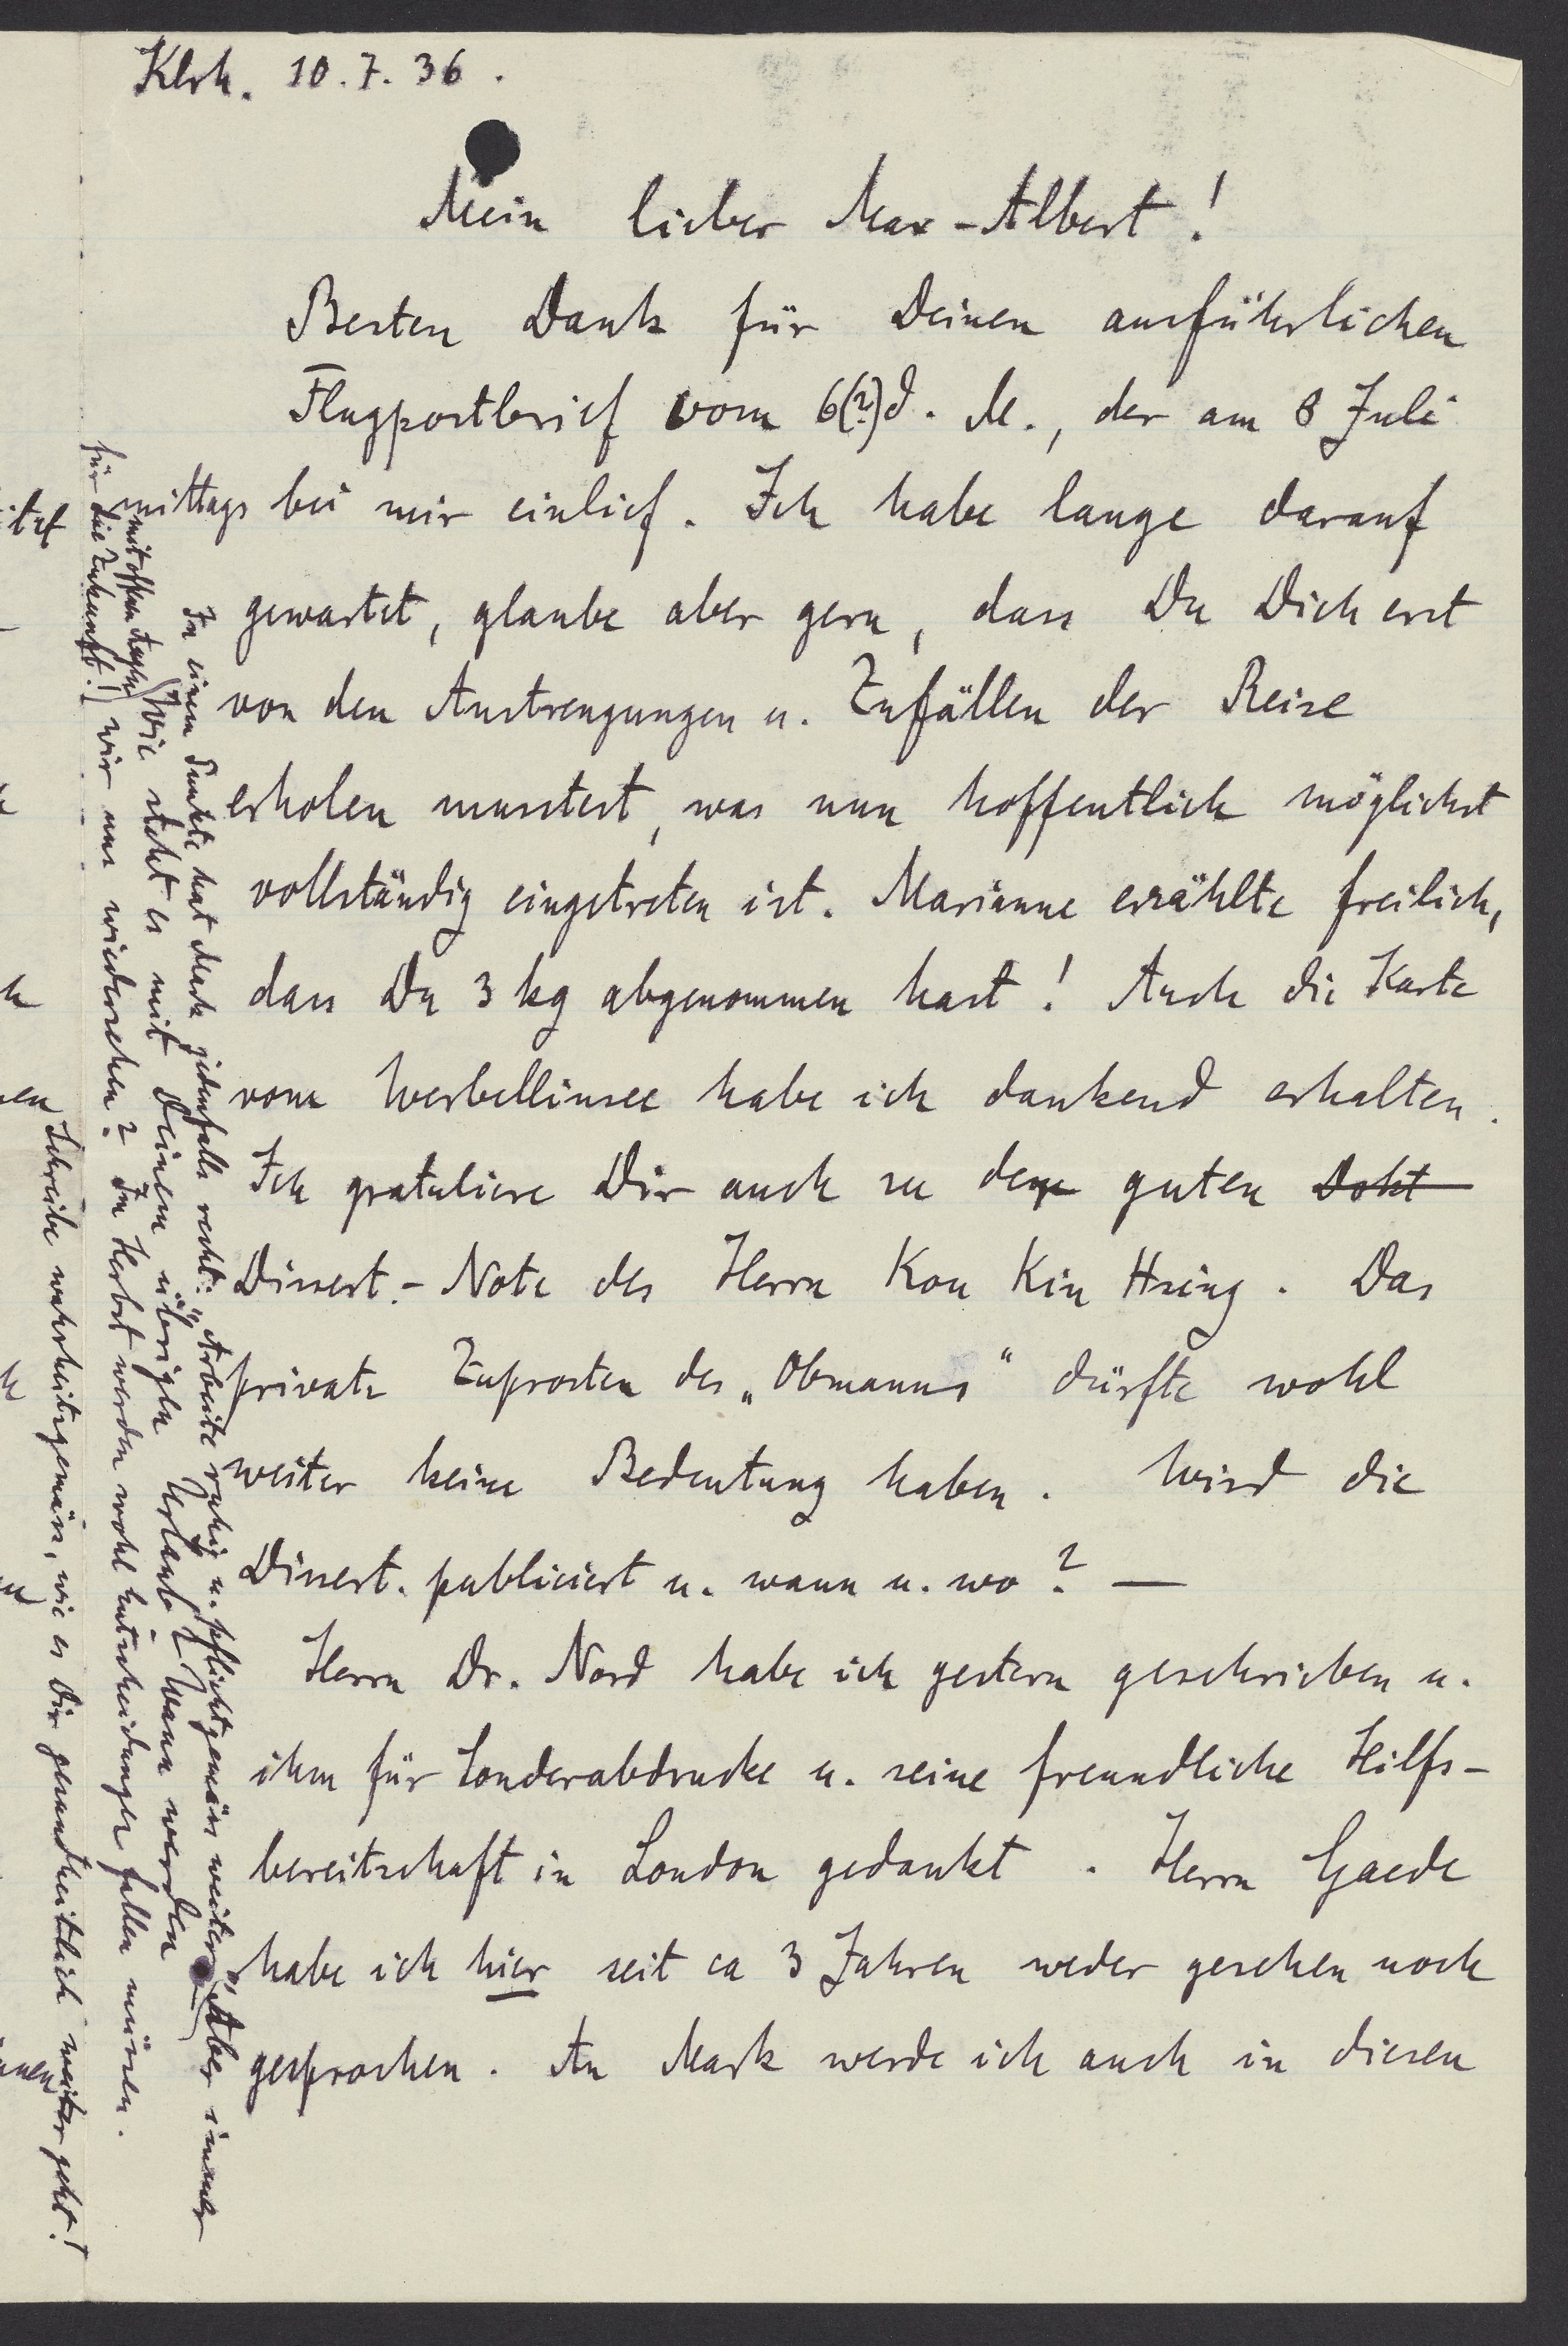 Klrh. 10.7.36.
Mein lieber Max-Albert!
Besten Dank für Deinen ausführlichen
Flugpostbrief vom 6(?) d. M., der am 8 Juli
mittags bei mir einlief. Ich habe lange darauf
gewartet, glaube aber gern, dass Du Dich erst
von den Anstrengungen u. Zufällen der Reise
erholen musstest, was nun hoffentlich möglichst
vollständig eingetreten ist. Marianne erzählte freilich,
dass Du 3 kg abgenommen hast! Auch die Karte
vom Werbellinsee habe ich dankend erhalten.
Ich gratuliere Dir auch zu der guten Dokt
Dissert.- Note des Herrn Kou Kin Hsing. Das
private Zuprosten des „Obmanns“ dürfte wohl
weiter keine Bedeutung haben. Wird die
Dissert. publiciert u. wann u. wo? —
Herrn Dr. Nord habe ich gestern geschrieben u.
ihm für Sonderabdrucke u. seine freundliche Hilfs-
bereitschaft in London gedankt. Herrn Gaede
habe ich hier seit ca 3 Jahren weder gesehen noch
gesprochen. An Mark werde ich auch in diesen
In einem Punkte hat Mark jedenfalls recht: „Arbeite ruhig u. pflichtgemäss weiter“ (Aber immer
mit offenen Augen
für die Zukunft!)
Wie steht es mit Deinem übrigen Urlaub? Wann werden
wir uns wiedersehen? Im Herbst werden wohl Entscheidungen fallen müssen.
Schreibe wahrheitsgemäss, wie es Dir gesundheitlich weiter geht!